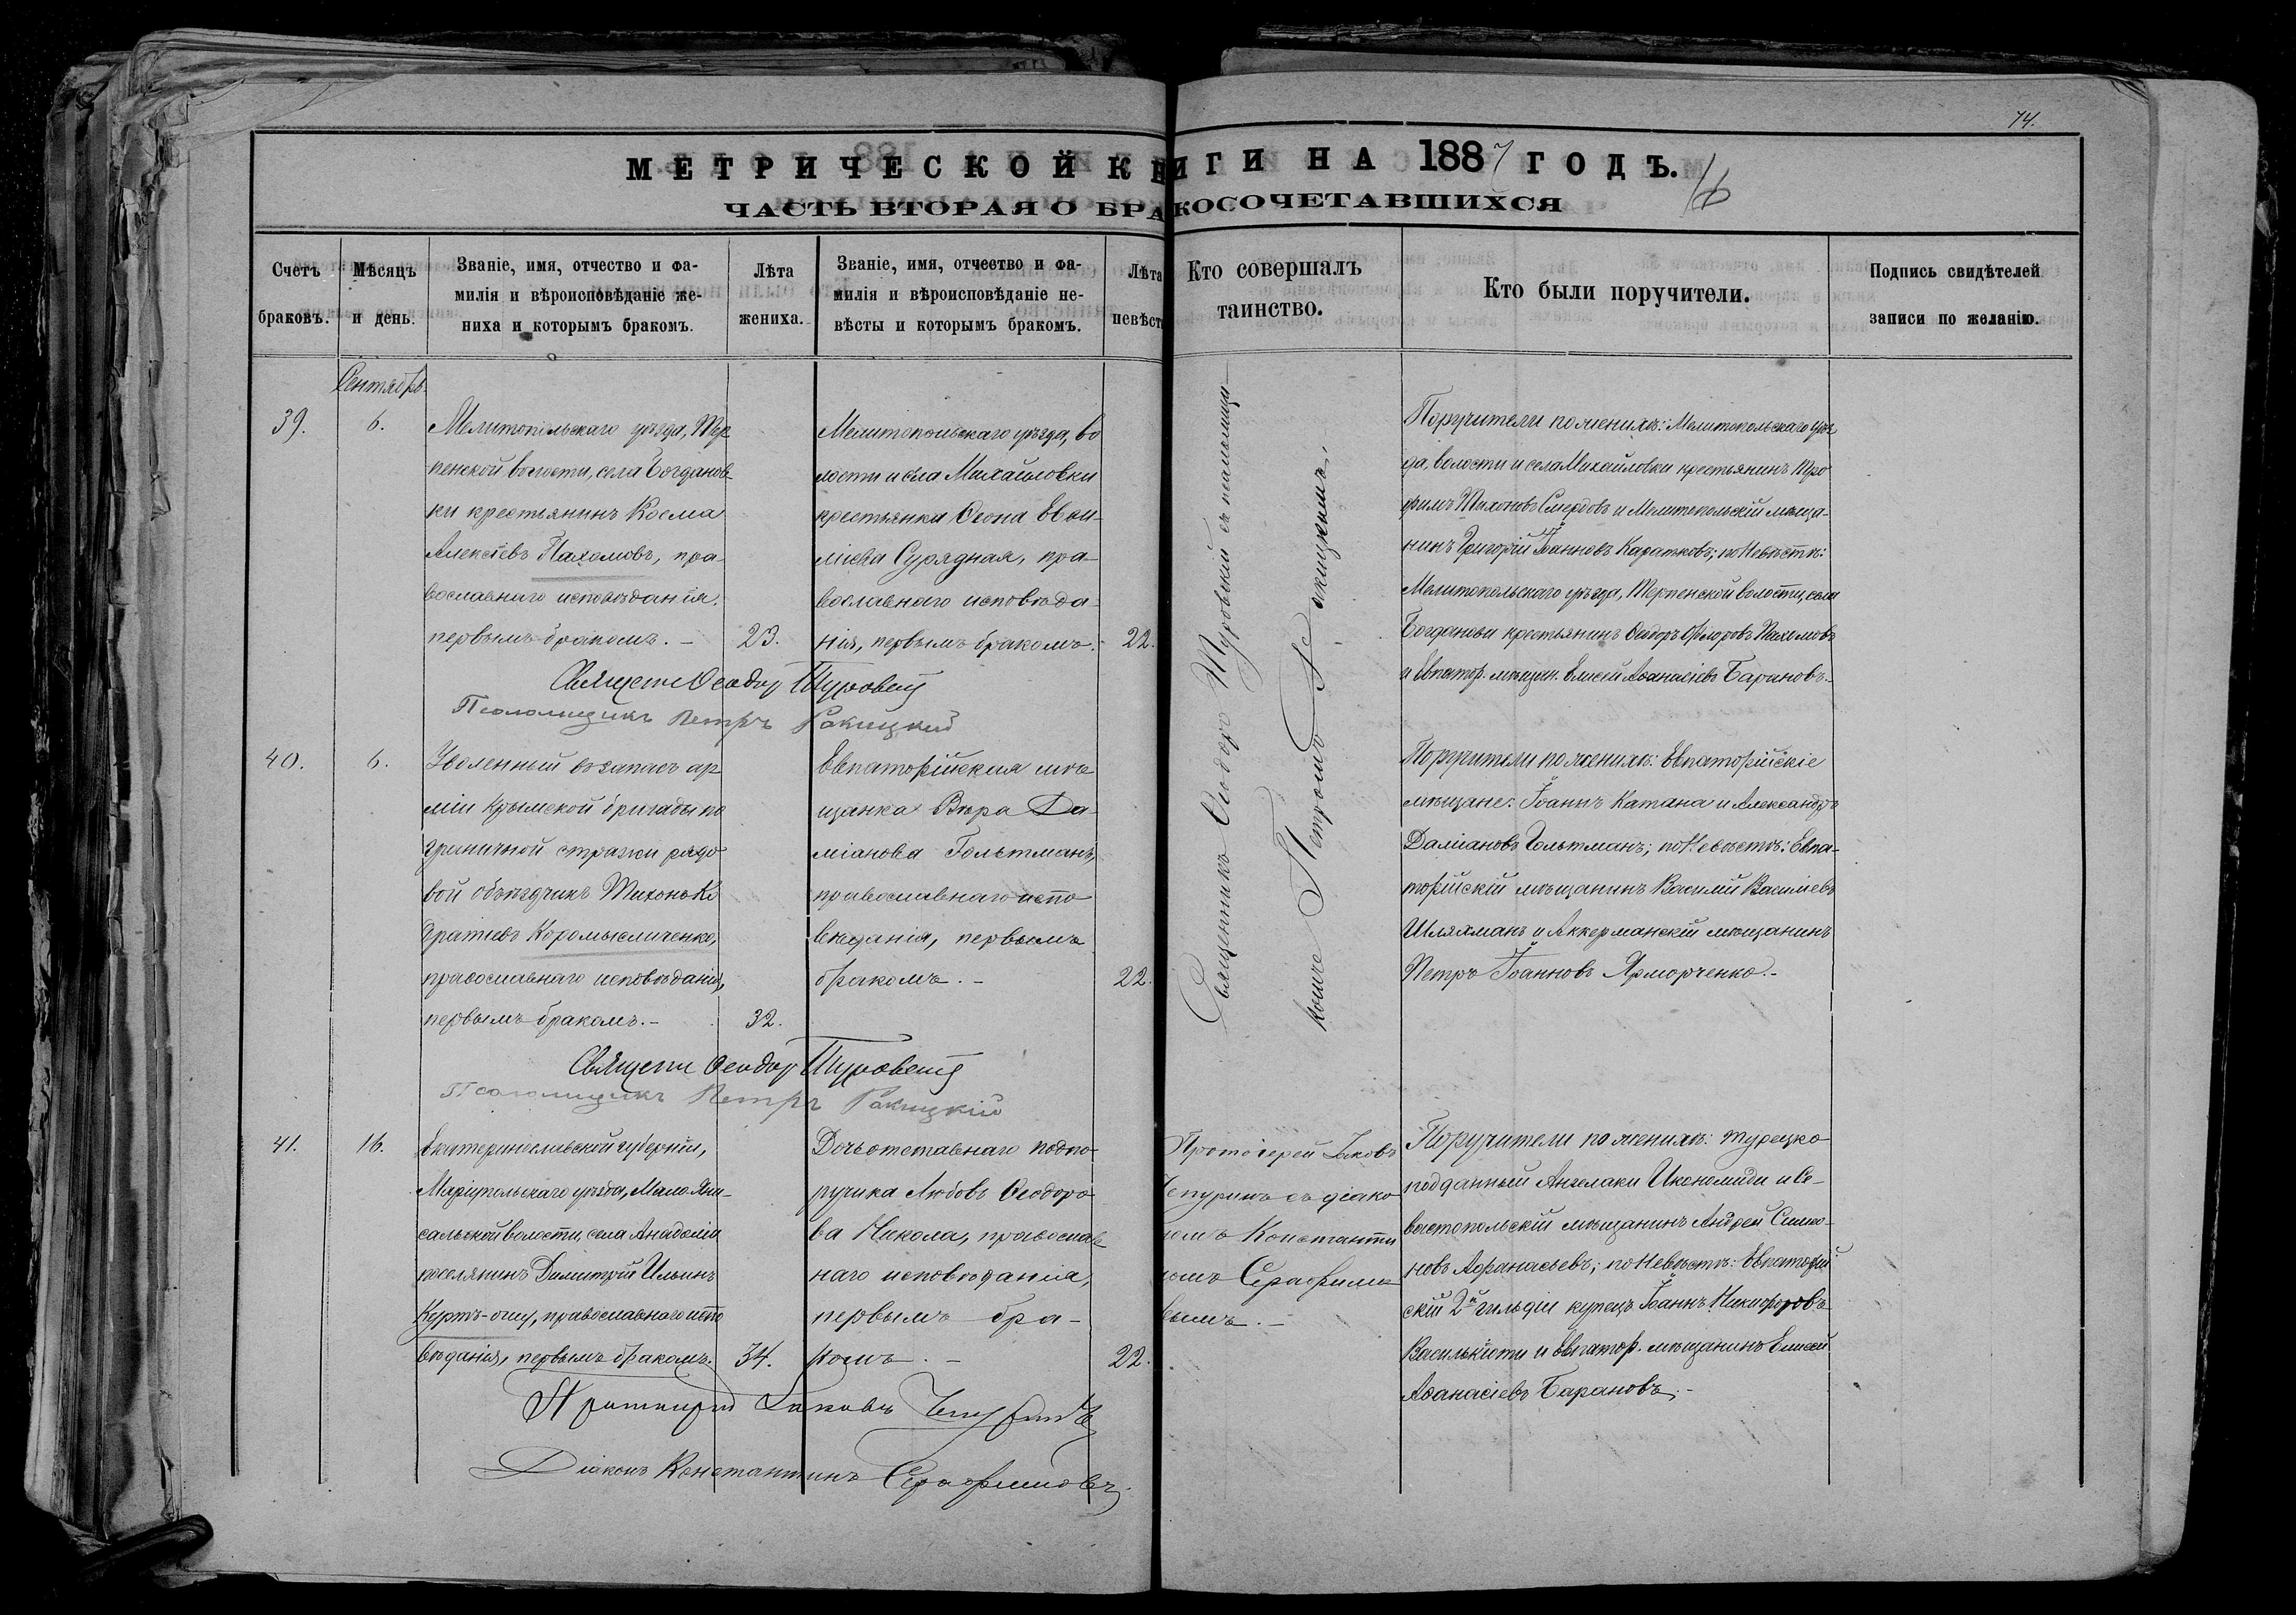 74.
МЕТРИЧЕСКОЙ КНИГИ НА 1887 ГОДЪ.
16
ЧАСТЬ ВТОРАЯ О БРАКОСОЧЕТАВШИХСЯ
Счетъ
браковъ.
Мѣсяцъ
и день.
Званіе, имя, отчество и фа-
милія и вѣроисповѣданіе же-
ниха и которымъ бракомъ.
Лѣта
жениха.
Званіе, имя, отчество и фа-
милія и вѣроисповѣданіе не-
вѣсты и которымъ бракомъ.
Лѣта
невѣсты
Кто совершалъ
таинство.
Кто были поручители.
Подпись свидѣтелей
записи по желанію.
Сентябрь
39.
6.
Мелитопольскаго уѣзда, Тер
пенской волости, села Богданов
ки крестьянинъ Косма
Алексѣевъ Пахомовъ, пра-
вославнаго исповѣданія,
первымъ бракомъ. –
23.
Мелитопольскаго уѣзда, во
лости и села Михайловки
крестьянка
православнаго исповѣда-
нія, первымъ бракомъ.
22.
Священникъ Ѳеодоръ Туровскій съ псаломщи
комъ Петромъ Ра
Поручители по женихѣ: Мелитопольскаго уѣз
да, волости и села Михайловки крестьянинъ Тро
фимъ Тихоновъ Смердовъ и Мелитопольскій мѣща-
нинъ Григорій Іоанновъ Каратковъ; по невѣстѣ:
Мелитопольскаго уѣзда, Терпенской волости, села
Богдановки крестьянинъ Ѳеодоръ Пахомовъ
и Евпатор. мѣщан. Елисей Аѳанасіевъ Барановъ. –
Священ Ѳеодор Туровскій
Псаломщикъ Петръ Ракицкій
40.
6.
Уволенный въ запасъ ар
міи Крымской бригады по
граничной стражи рядо
вой объѣздчикъ Тихонъ Ко
дратіевъ Коромысличенко,
православнаго исповѣданія,
первымъ бракомъ. –
32.
Евпаторійская мѣ
щанка Вѣра Да-
міанова Гольтманъ,
православнаго испо
вѣданія, первымъ
бракомъ. –
22.
Поручители по женихѣ: Евпаторійскіе
мѣщане: Іоаннъ Катана и Александръ
Даміановъ Гольтманъ; по невѣстѣ: Евпа-
торійскій мѣщанинъ Василій Василіевъ
Шляхманъ и Аккерманскій мѣщанинъ
Петръ Іоанновъ Ярморченко. –
Священ Ѳеодор Туровскій
Псаломщикъ Петръ Ракицкій
41.
16.
Екатеринославской губерніи,
Маріупольскаго уѣзда, Мало-Яни-
сальской волости, села Анадоліи
поселянинъ Димитрій Ильинъ
Куртъ-оглу, православнаго испо
вѣданія, первымъ бракомъ.
34.
Дочь отставнаго подпо-
ручика Любовь Ѳеодоро
ва Никола, православ
наго исповѣданія,
первымъ бра-
комъ. –
22.
Протоіерей Іаковъ
Чепуринъ съ діако
номъ Константи
номъ Серафимо
вымъ. –
Поручители по женихѣ: турецко
подданный Ангелаки Икономиди и Се-
вастопольскій мѣщанинъ Андрей Симо-
новъ Афанасьевъ; по невѣстѣ: Евпаторій
скій 2й гильдіи купецъ Іоаннъ Никифоровъ
Василькіоти и Евпатор. мѣщанинъ Елисей
Аѳанасіевъ Барановъ. –
Протоіерей Іаковъ Чепуринъ
Діаконъ Константинъ Серафимовъ